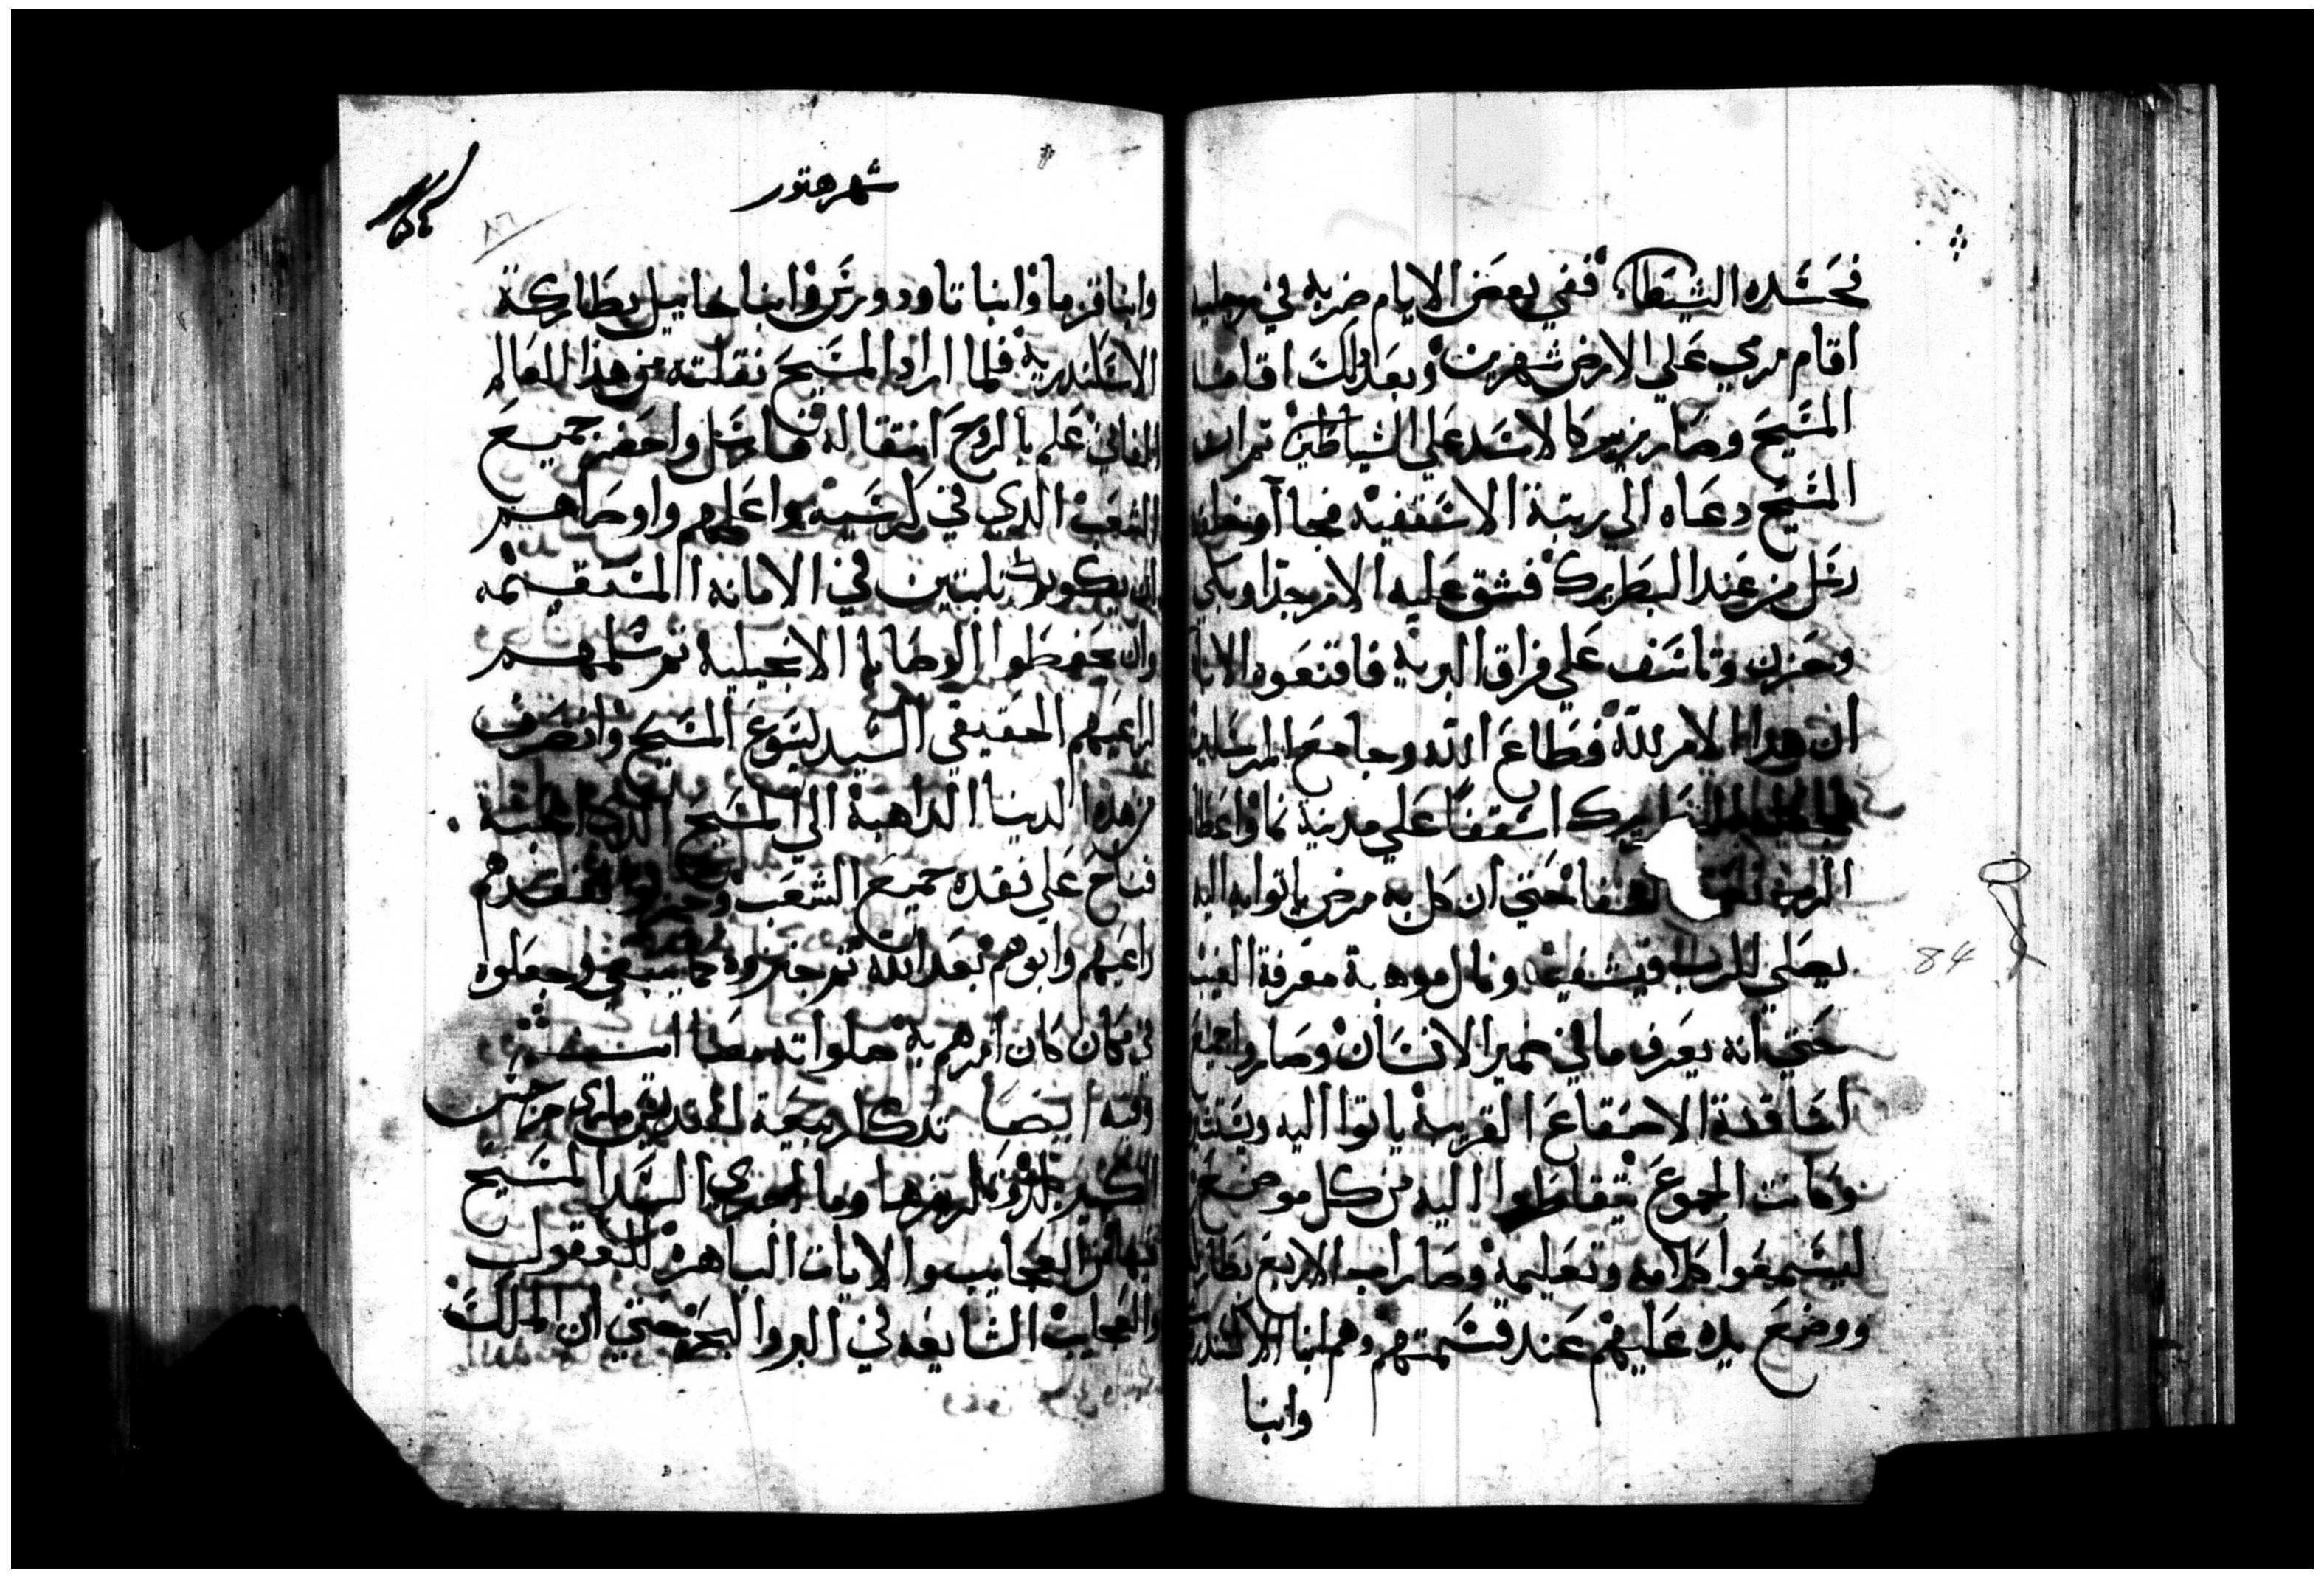 فحسده الشيطان ففي بعض الايام ضربه في رجليه
اقام مرمي علي الارض شهرين وبعد ذلك اقامه
المسيح وصار يزير كالاسد علي الشياطين ثم ان
المسيح دعاه الى رتبة الاسقفية فجا
رسل من عند البطريرك فشق عليه الامر جدا وبكي
وحزن وتاسف علي فراق البرية فاقنعوه الابا
ان هذا الامر لله فطاع الله وجا مع المرسلين
اسقفا علي مدينة نما واعطاه
الرب حتي ان كل به مرض ياتوا به اليه
يصلي للرب فيشفيه ونال موهبة معرفة الغيب
حتي انه يعرف ما في ضمير الانسان وصاروا جميع
اساقفة الاصقاع القريبة ياتوا اليه
وكانت الجموع يتقاطروا اليه من كل موضع
ليسمعوا كلامه وتعليمه وصار اب لاربع بطاركة
ووضع يده عليهم عند قسمتهم وهم انبا الاكسندرس
وابنا
شهر هتور
وابنا قزما وابنا تاودورس وابنا خاييل بطاركة
الاسكندرية فلما اراد المسيح نقلته من هذا العالم
الفاني علم بالروح انتقاله فارسل واحضر جميع
الشعب الذي في كرسيه واعلمهم واوصاهم
ان يكونوا ثابتين في الامانه المستقيمه
وان يحفظوا الوصايا الانجيلية ثم سلمهم
لراعيهم الحقيقي السيد يسوع المسيح وانصرف
من هذه الدنيا الداهبة الي المسيح الذي احبه
فناح علي فقده جميع الشعب وحزنوا لفقدهم
راعيهم وابوهم بعد الله ثم جنزوه كما ينبغي وجعلوه
في مكان كان امرهم به صلواته معنا امين
وفيه ايضا تذكار بيعة القديس ماري جرجس
الكبير وما اجري السيد المسيح
فيها من العجايب والايات الباهرة للعقول
والعجايب الشايعه في البر والبحر حتي ان الملك
84